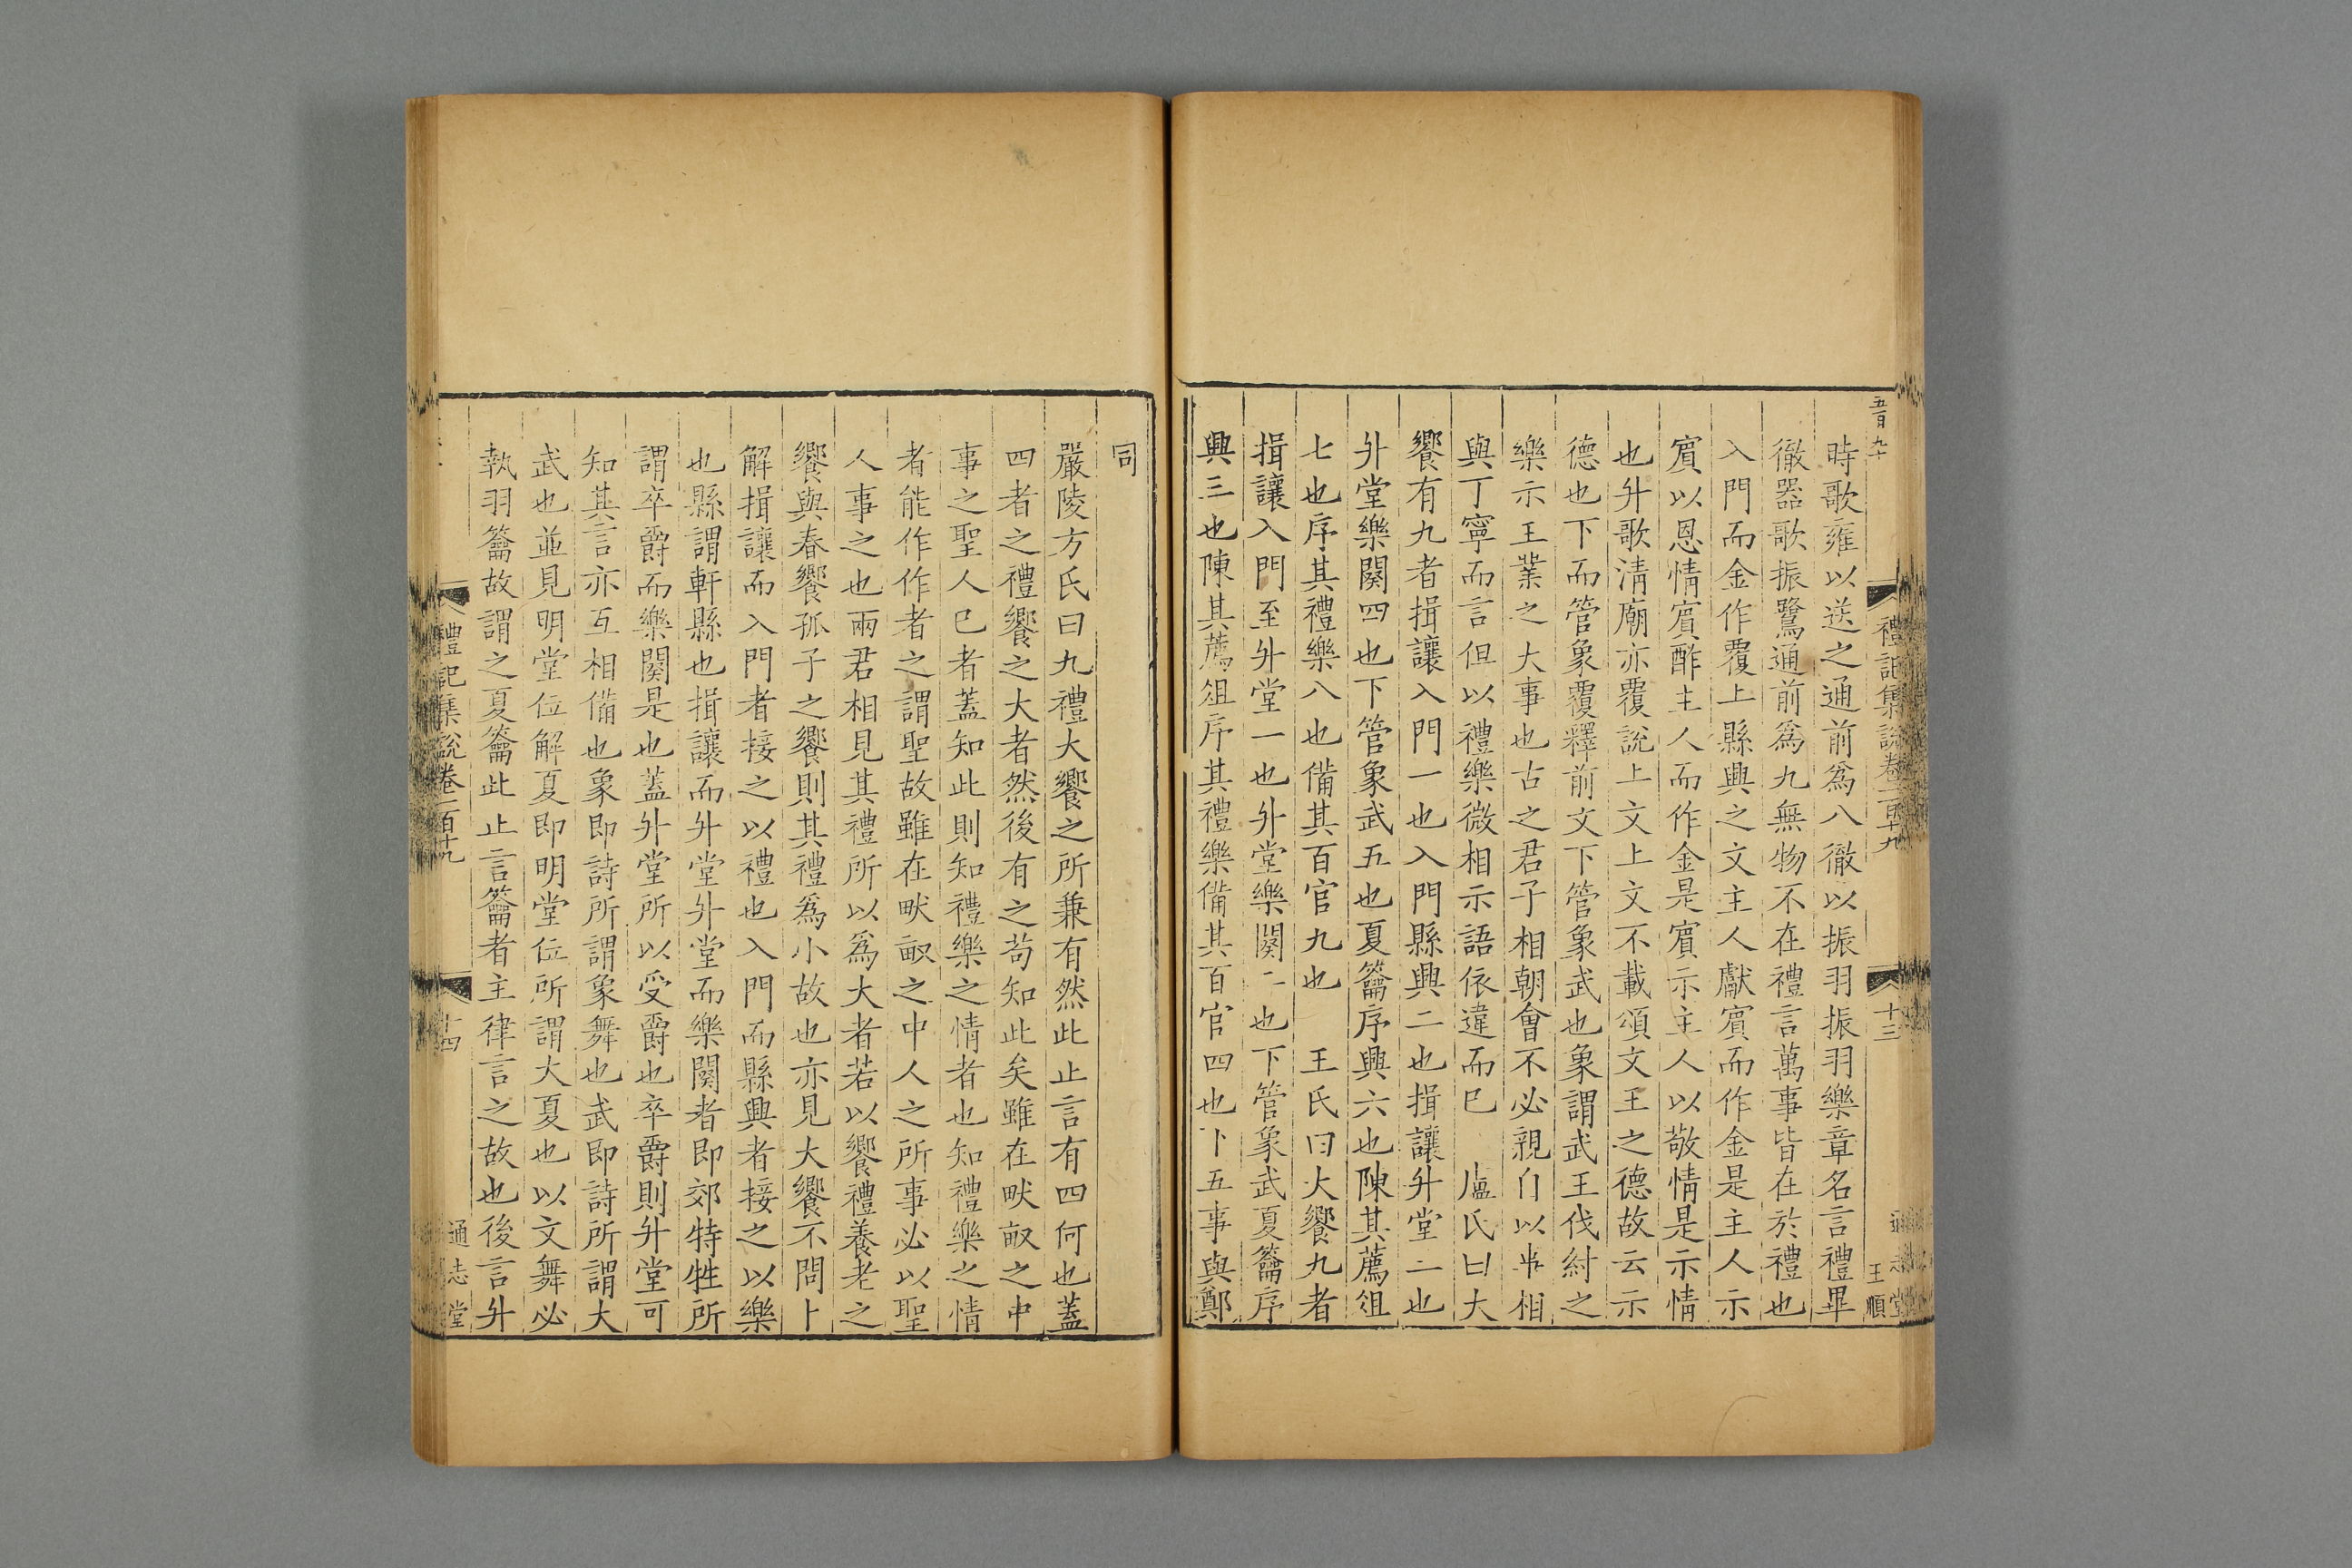 五百九十
禮記集說卷一百十九
十三
通志堂
王順
時歌雍以送之通前爲八徹以振羽振羽樂章名言禮畢
徹器歌振鷺通前爲九無物不在禮言萬事皆在於禮也
入門而金作覆上縣興之文主人獻賔而作金是主人示
賔以恩情賔酢主人而作金是賔示主人以敬情是示情
也升歌淸廟亦覆說上文上文不載頌文王之德故云示
德也下而管象覆釋前文下管象武也象謂武王伐紂之
樂示王業之大事也古之君子相朝會不必親自以事相
與丁寧而言但以禮樂微相示語依違而已　盧氏曰大
饗有九者揖讓入門一也入門縣興二也揖讓升堂三也
升堂樂闋四也下管象武五也夏籥序興六也陳其薦俎
七也序其禮樂八也備其百官九也　王氏曰大饗九者
揖讓入門至升堂一也升堂樂闋二也下管象武夏籥序
興三也陳其薦俎序其禮樂備其百官四也下五事與鄭
同
嚴陵方氏曰九禮大饗之所兼有然此止言有四何也蓋
四者之禮饗之大者然後有之苟知此矣雖在畎畝之中
事之聖人已者蓋知此則知禮樂之情者也知禮樂之情
者能作作者之謂聖故雖在畎畝之中人之所事必以聖
人事之也兩君相見其禮所以爲大者若以饗禮養老之
饗與春饗孤子之饗則其禮爲小故也亦見大饗不問卜
解揖讓而入門者接之以禮也入門而縣興者接之以樂
也縣謂軒縣也揖讓而升堂升堂而樂闋者即郊特牲所
謂卒爵而樂闋是也蓋升堂所以受爵也卒爵則升堂可
知其言亦互相備也象即詩所謂象舞也武即詩所謂大
武也並見明堂位解夏即明堂位所謂大夏也以文舞必
執羽籥故謂之夏籥此止言籥者主律言之故也後言升
禮記集說卷一百十九
十四
通志堂